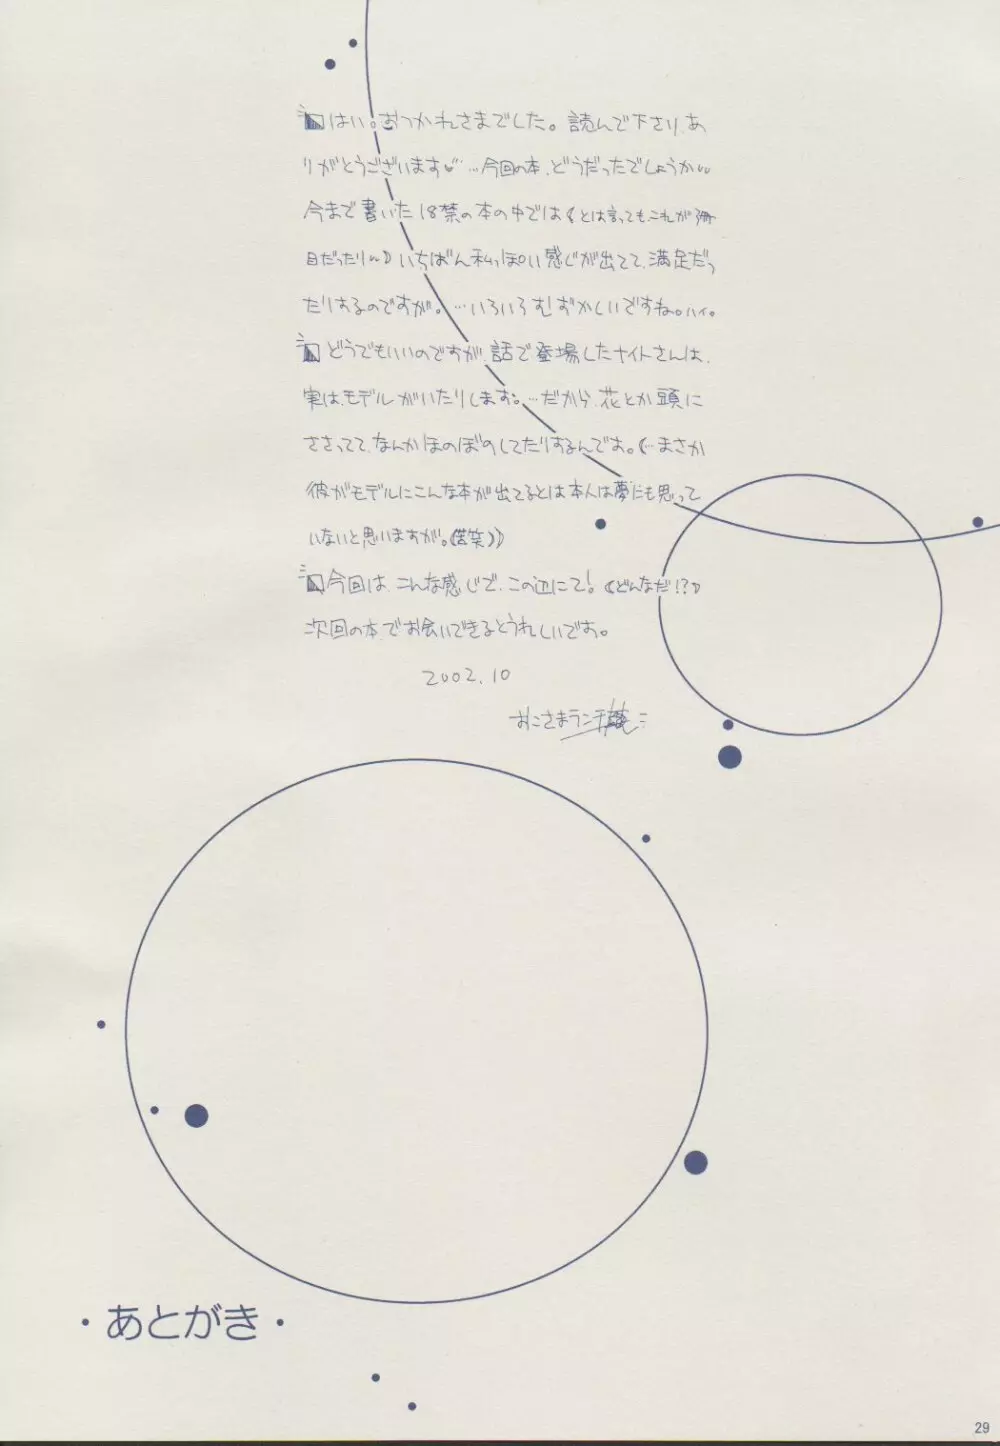 はい。おつかれさまでした。読んで下さり、あ
りがとうございます♡ …今回の本、どうだったでしょうか
今まで書いた18禁の本の中では(とは言ってもこれが 冊
目だったり) いちばん私っぽい感じが出てて、満足だっ
たりするのですが。…いろいろむずかしいですね。ハイ。
どうでもいいのですが、話で登場したナイトさんは、
実は、モデルがいたりします。…だから、花とか頭に
ささってて、なんかほのぼのしてたりするんです。(…まさか
彼がモデルにこんな本が出てるとは本人は夢にも思って
いないと思いますが。(苦笑))
今回は、こんな感じで、この辺にて! (どんなだ!?)
次回の本でお会いできるとうれしいです。
2002.10
おこさまランチ
・あとがき・
29